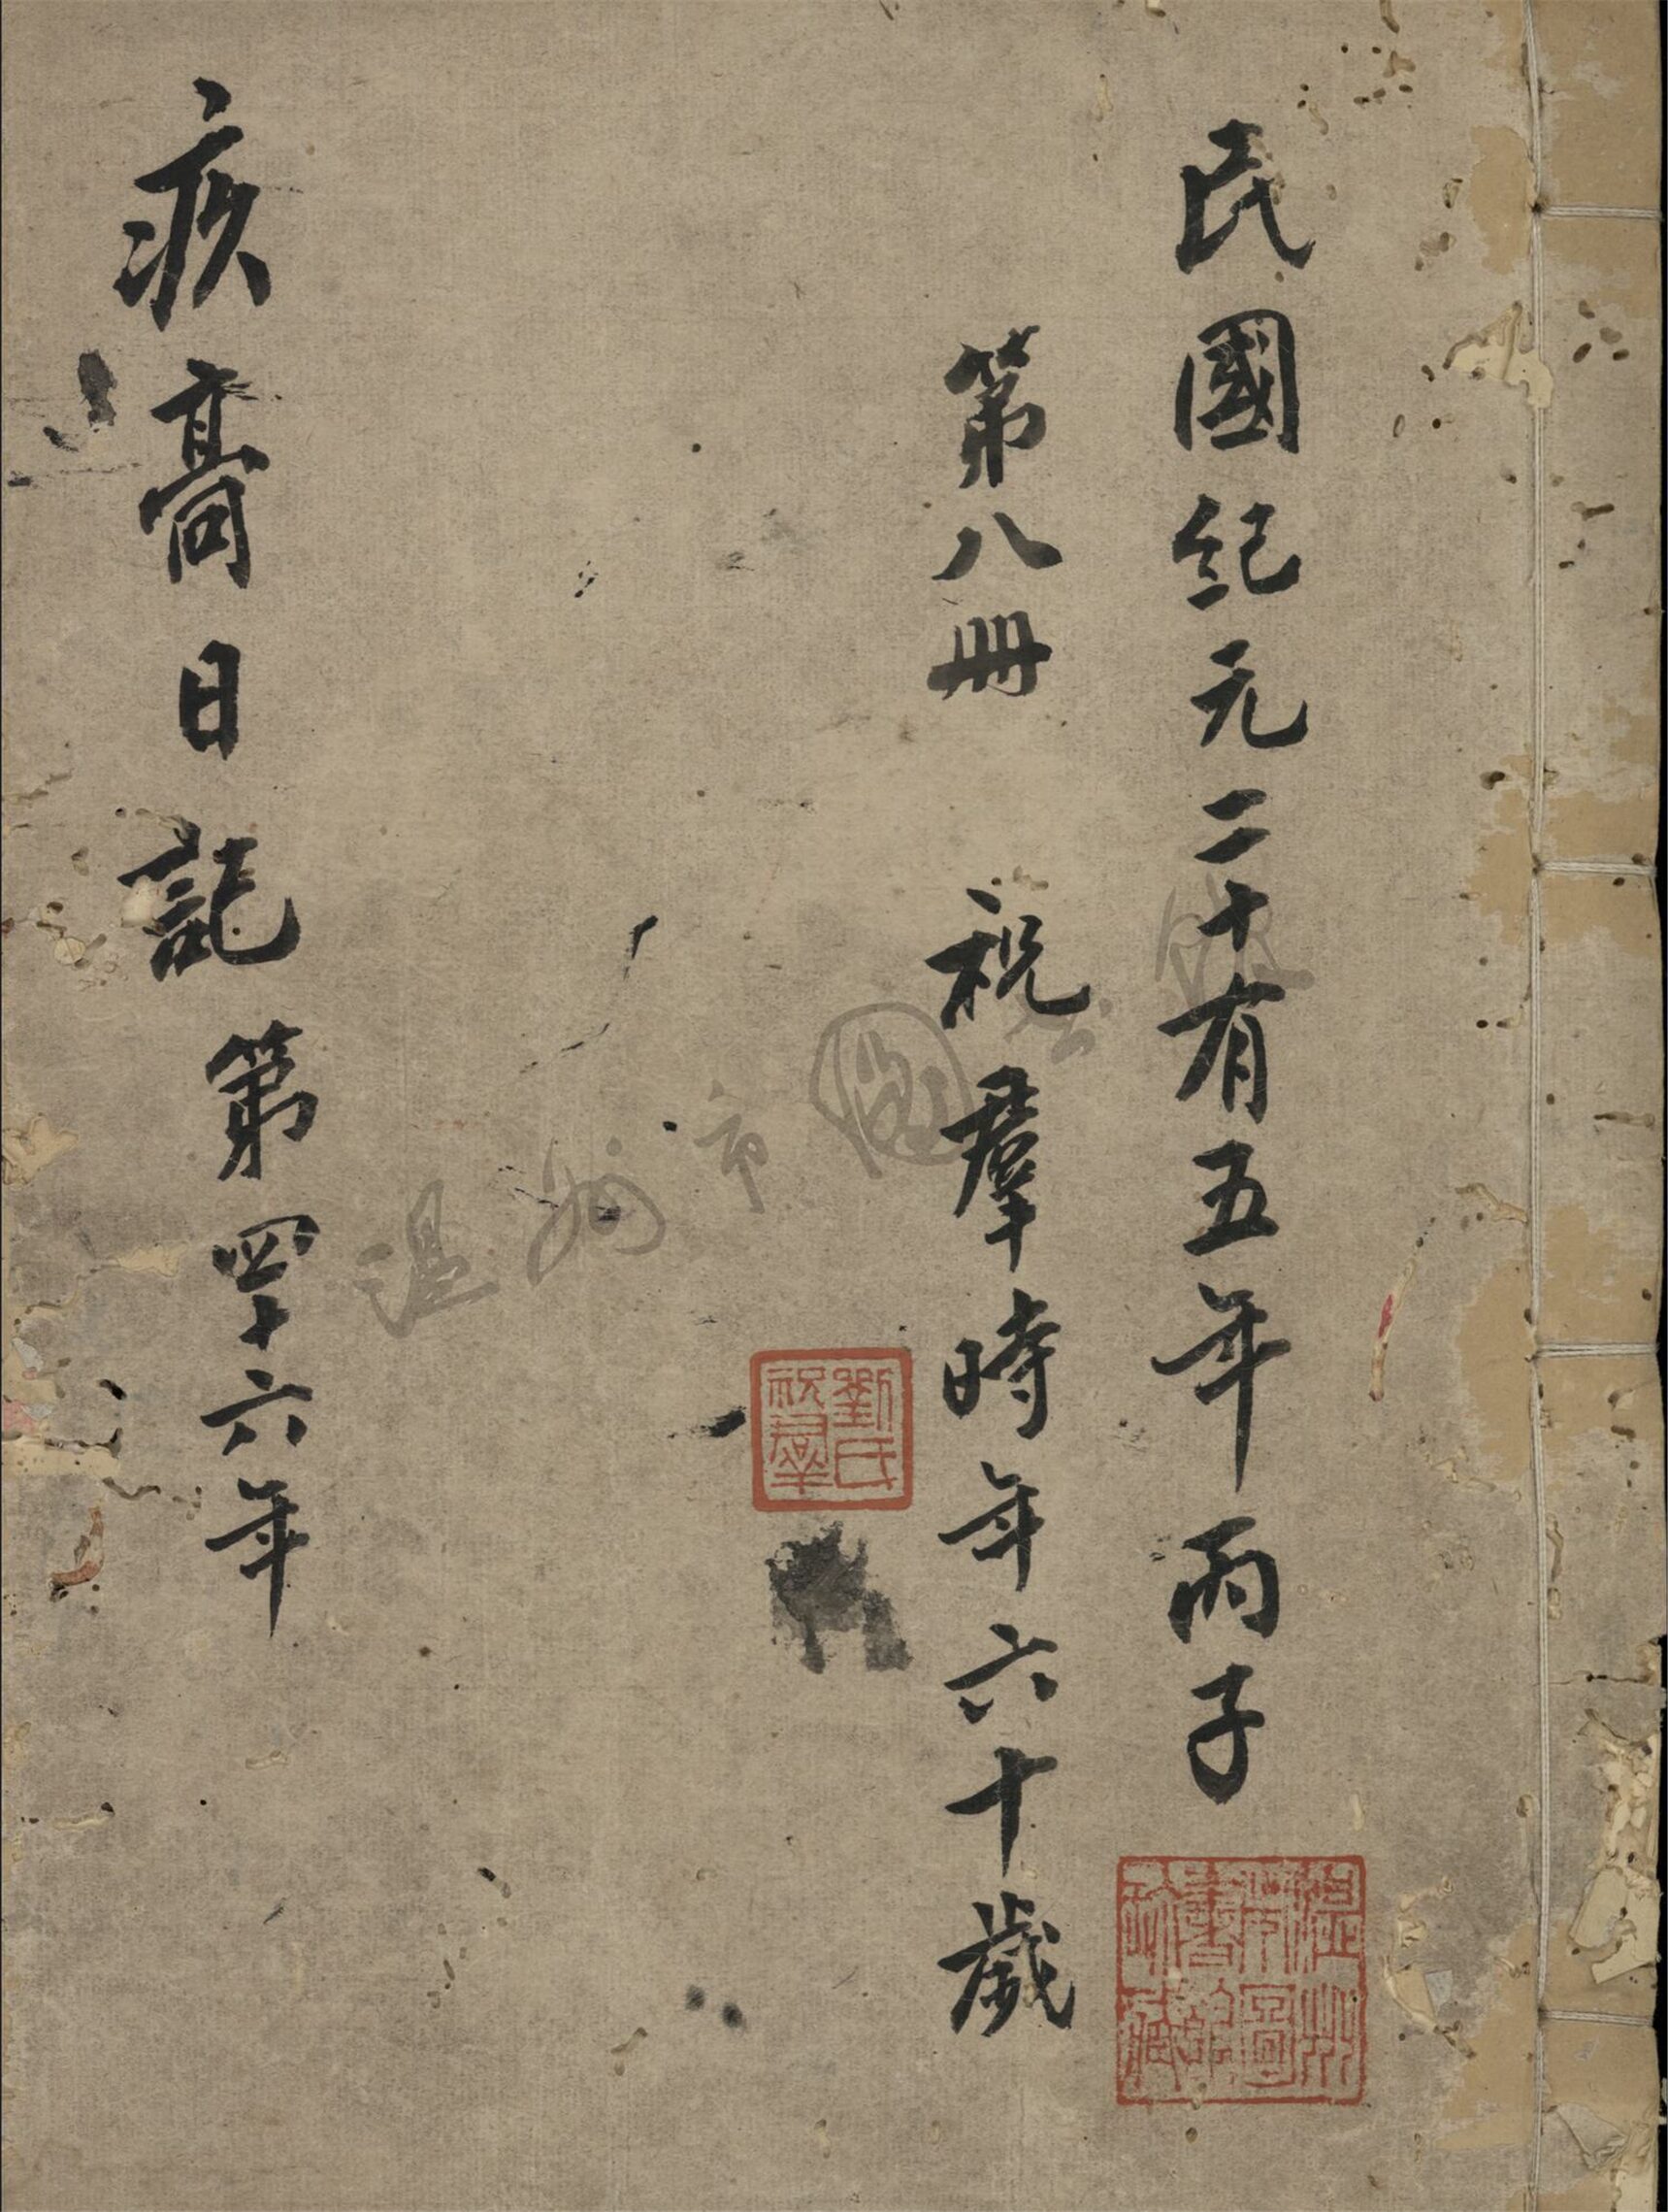 民國紀元二十有五年丙子
第八冊 祝羣時年六十歲
疚䯧日記 第四十六年
劉氏
祝羣
溫州
市圖
書館
所藏
溫州市圖書館